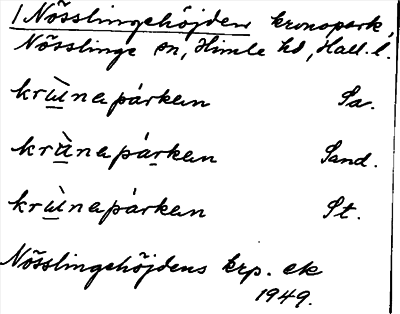 /Nösslingehöjden kronopark,
Nösslinge sn, Himle hd, Hall. l.
krùnapárkan Sa.
krùnapárkan Sand.
krùnapárkan St.
Nösslingehöjdens krp. ek
1949.